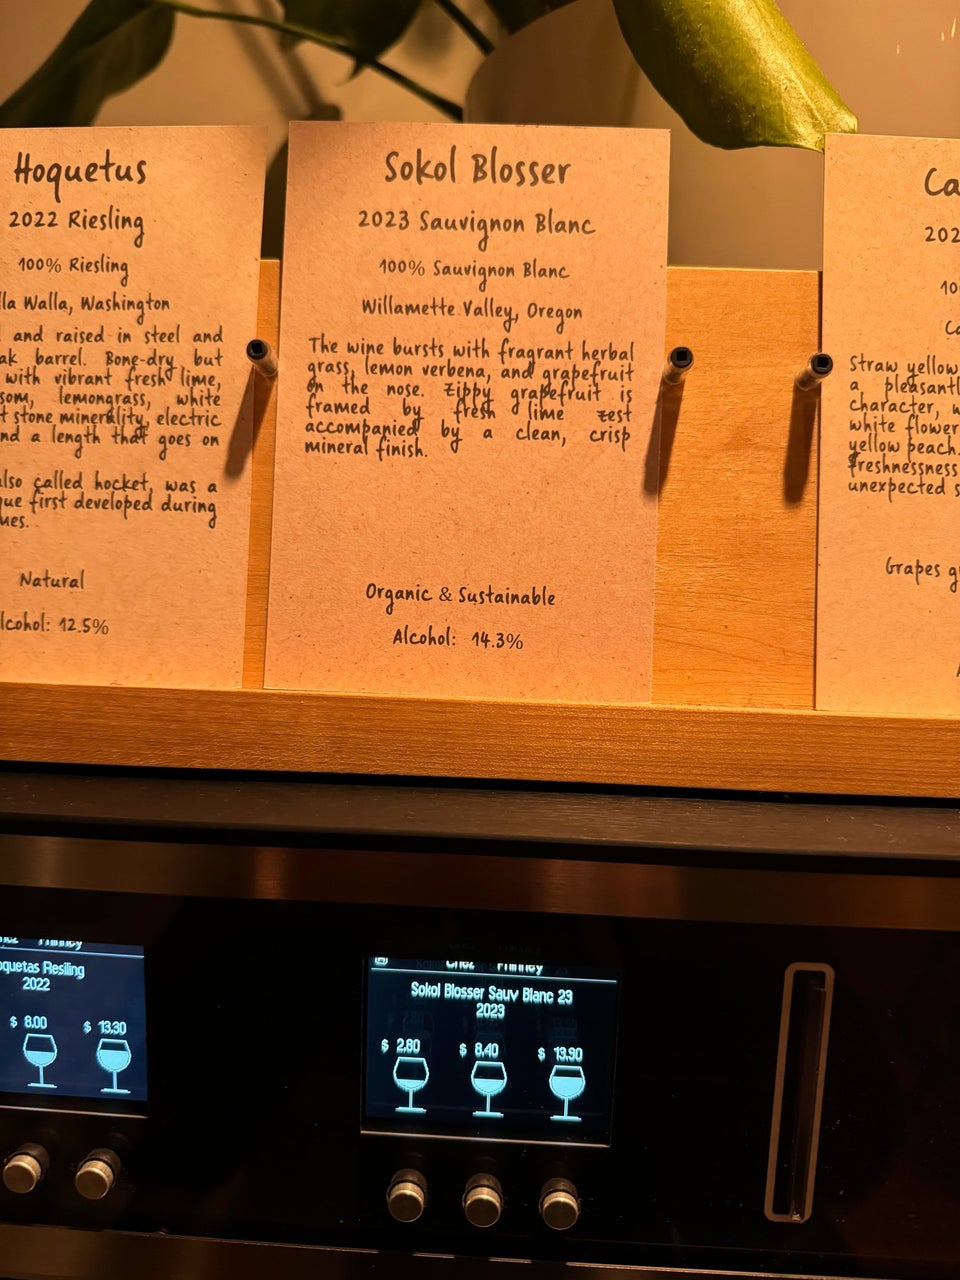 Hoquetus
2022 Riesling
100% Riesling
lla Walla, Washington
and raised in steel and
ak barrel. Bone-dry but
with vibrant fresh lime,
som, lemongrass, white
t stone minerality, electric
nd a length that goes on
also called hocket, was a
que first developed during
ues.
Natural
lcohol: 12.5%
Sokol Blosser
2023 Sauvignon Blanc
100% Sauvignon Blanc
Willamette Valley, Oregon
The wine bursts with fragrant herbal
grass, lemon verbena, and grapefruit
on the nose. Zippy grapefruit is
framed by fresh lime zest
accompanied by a clean, crisp
mineral finish.
Organic & Sustainable
Alcohol: 14.3%
Ca
202
10
Ca
Straw yellow
a pleasant
character, w
white flower
yellow peach.
freshnessness
unexpected s
Grapes g
hez Phinney
oquetas Resiling
2022
$ 8.00 $ 13.30
Chez Phinney
Sokol Blosser Sauv Blanc 23
2023
$ 2.80 $ 8.40 $ 13.90